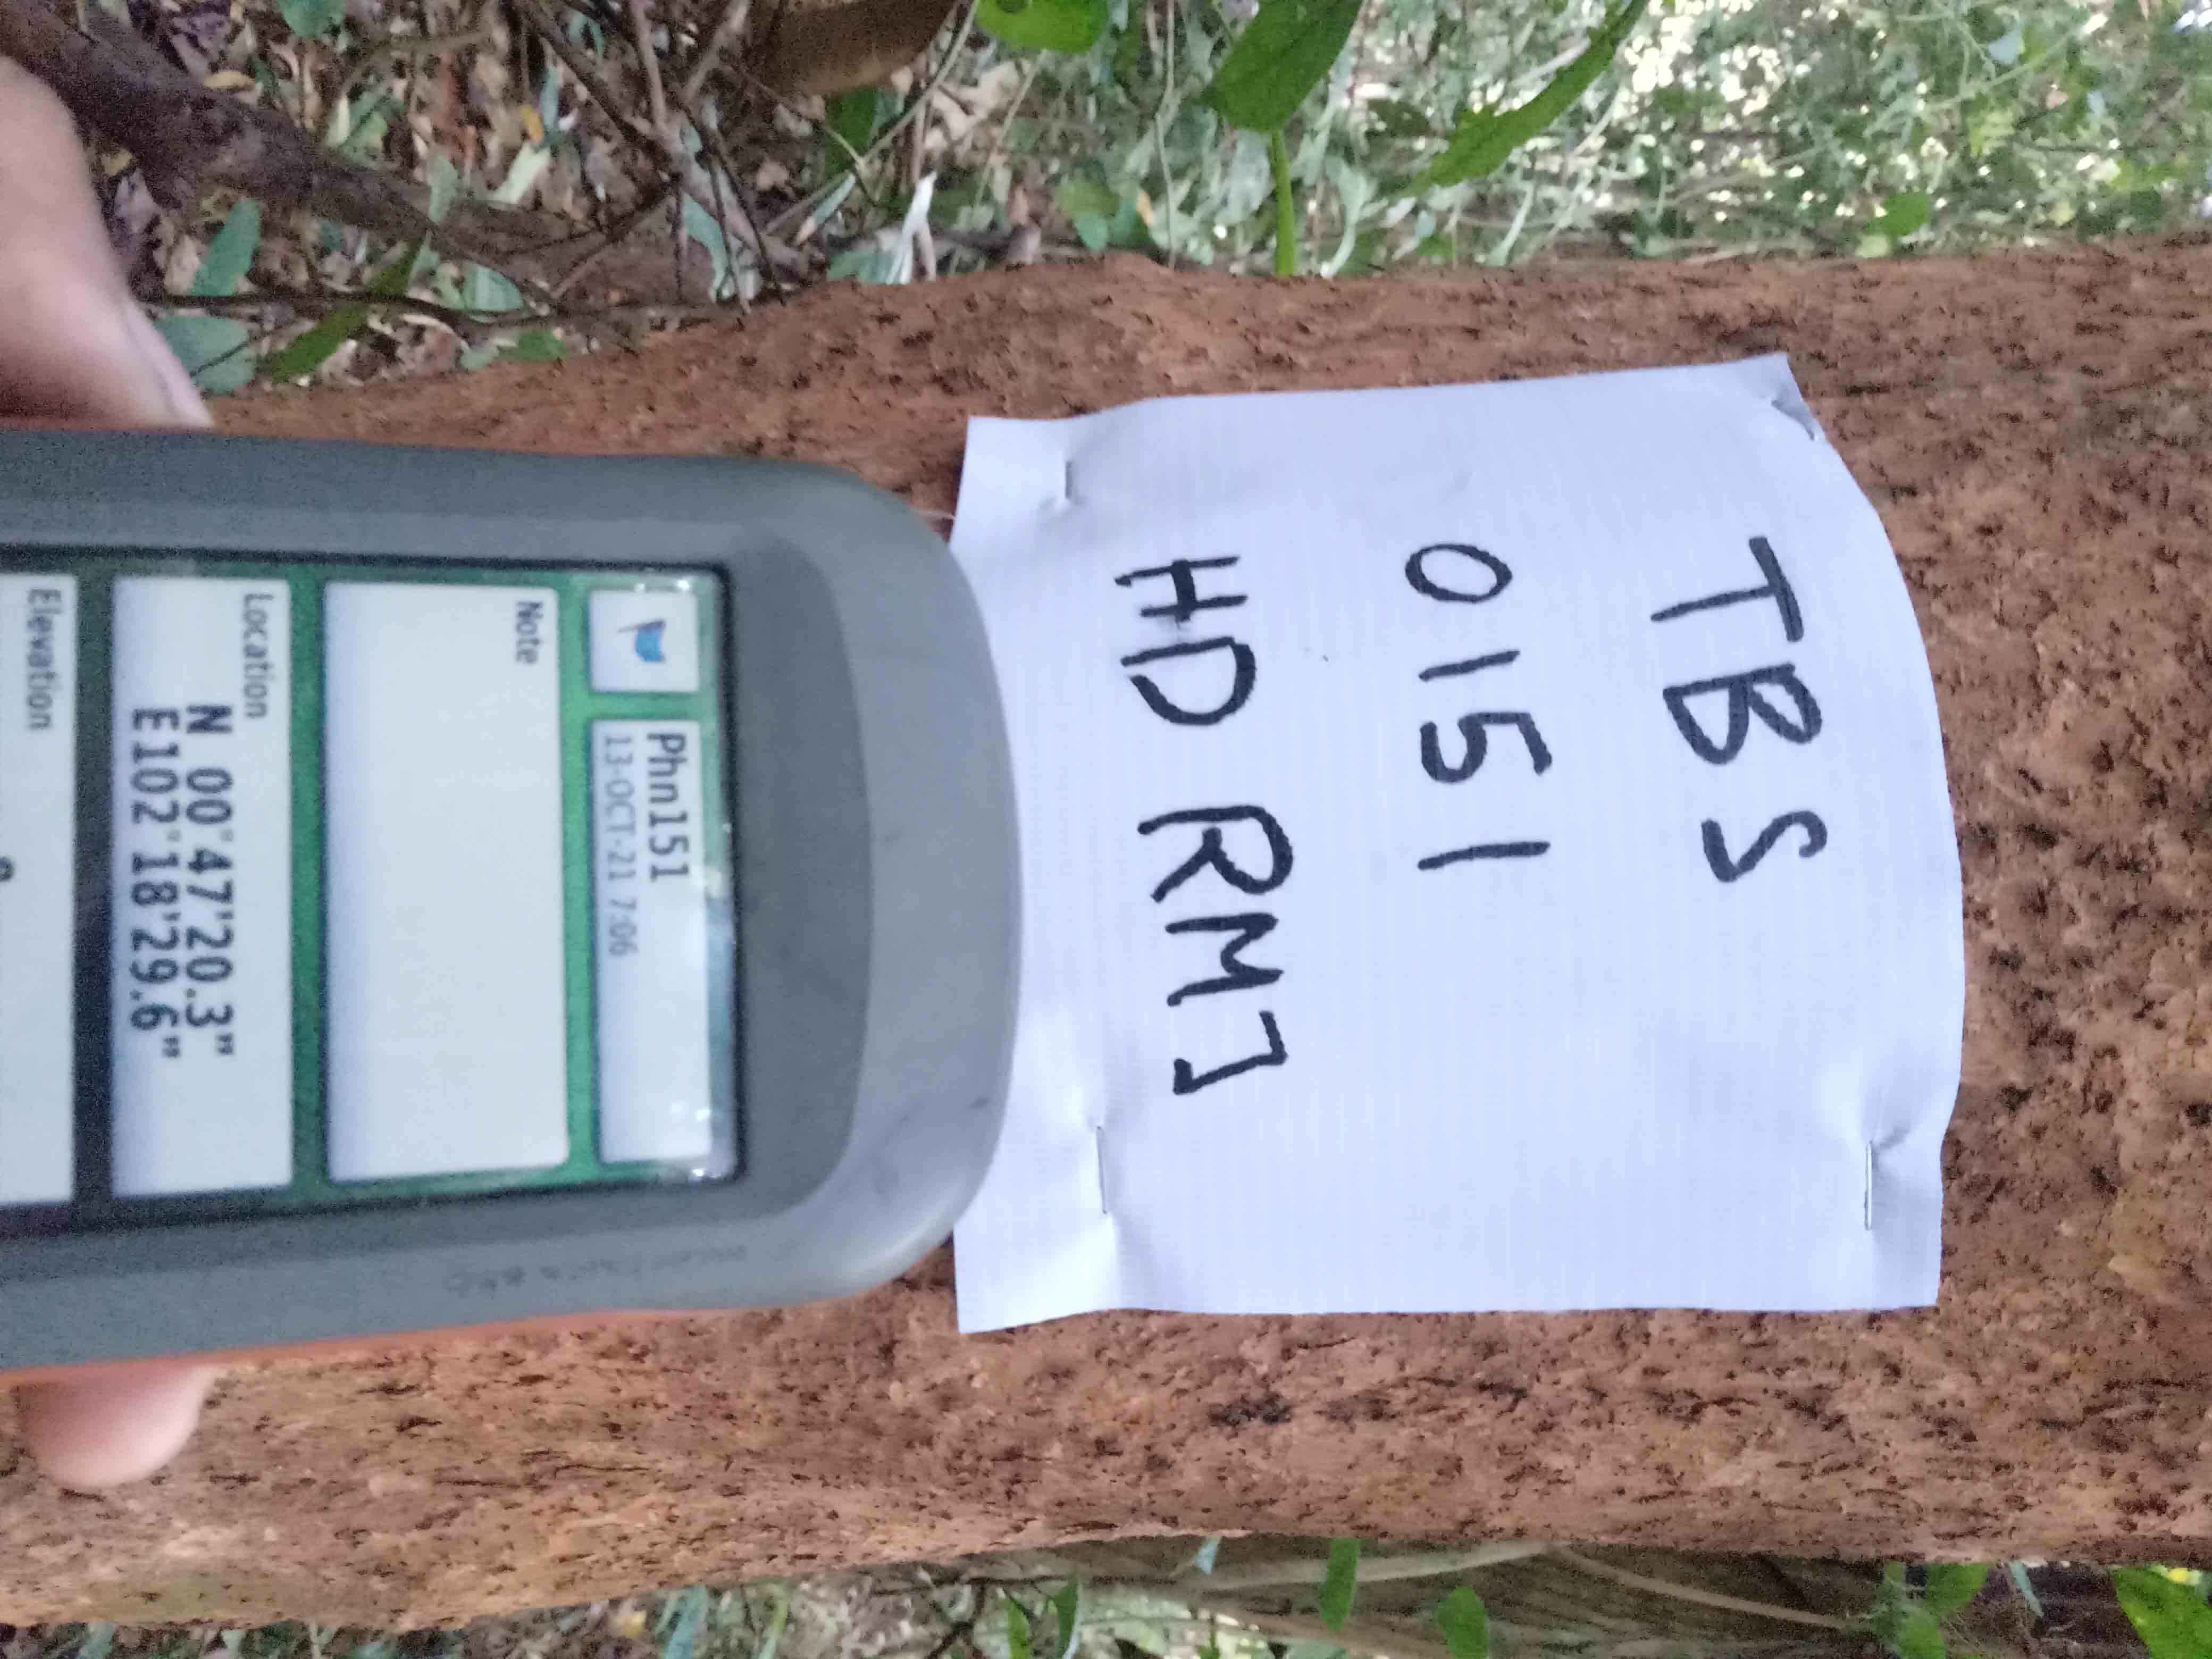 TBS
0151
HD RMJ
Phn151
13-OCT-21 7:06
Note
Location
N 00°47'20.3"
E102°18'29.6"
Elevation